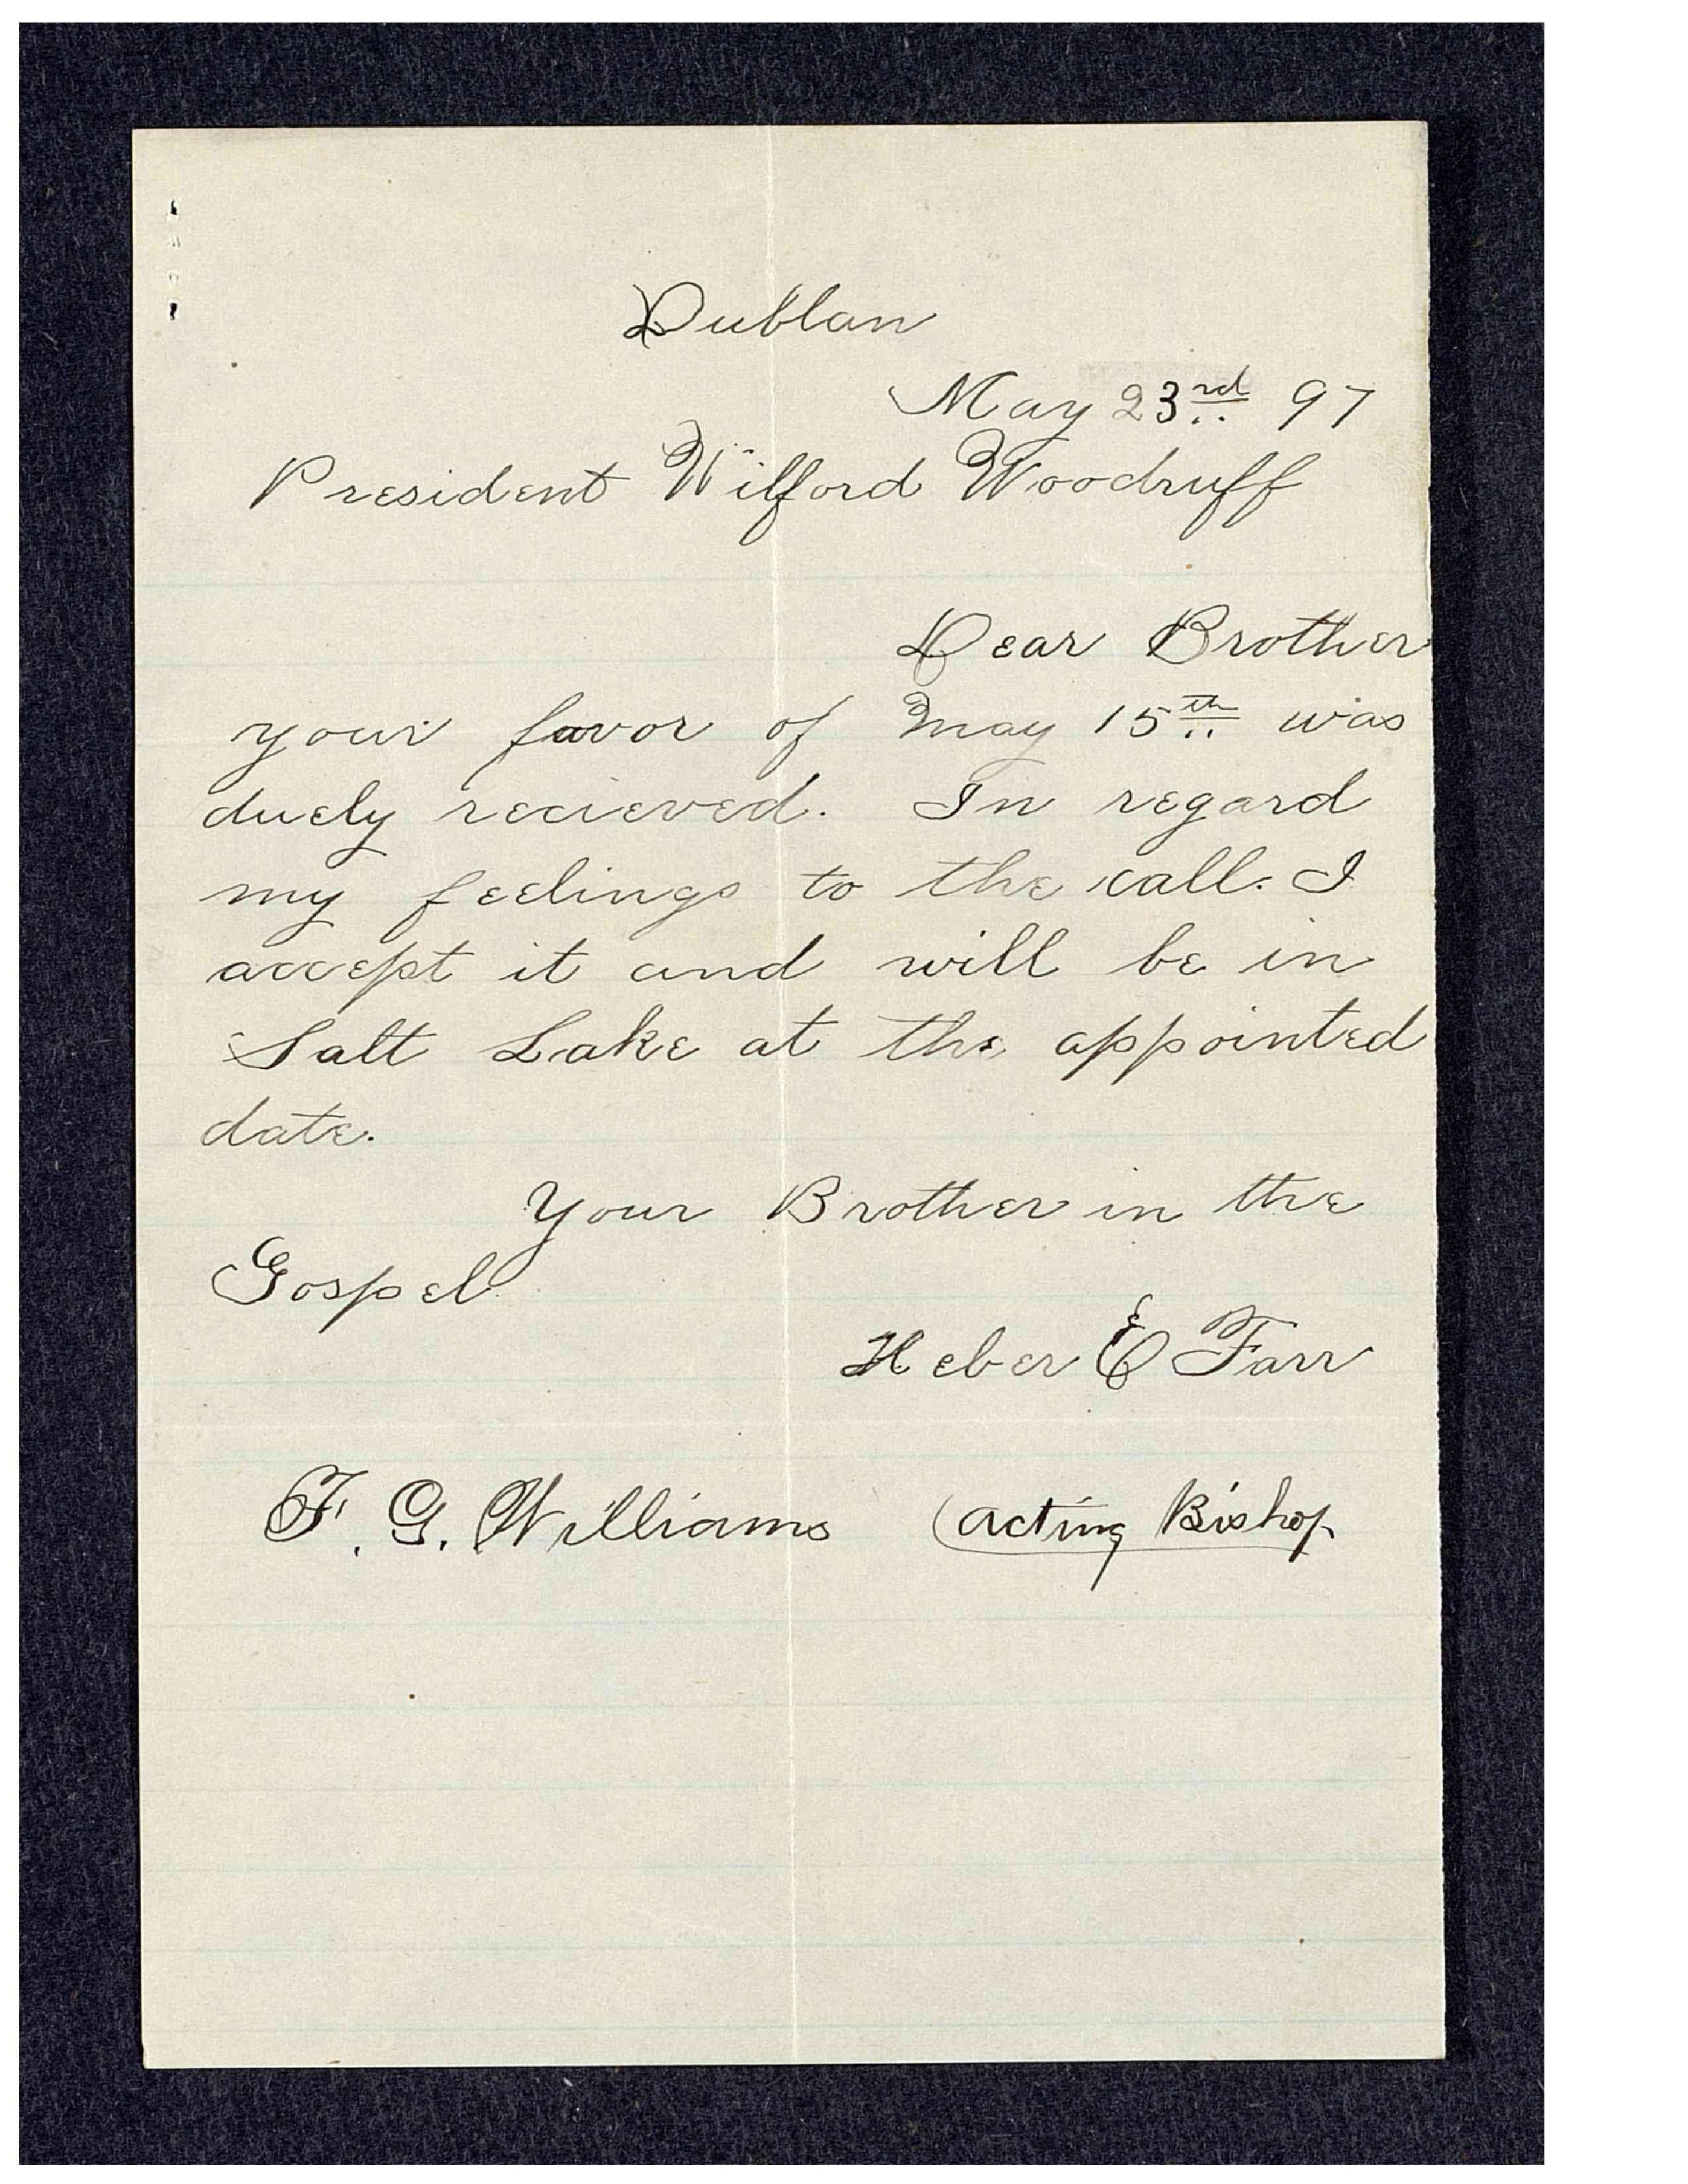 Dublan
May 23rd 97
President Wilford Woodruff
Dear Brother
your favor of May 15th was
duely recieved. In regard
my feelings to the call. I
accept it and will be in
Salt Lake at the appointed
date.
Your Brother in the
Gospel
Heber E Farr
F. G. Williams (acting Bishop